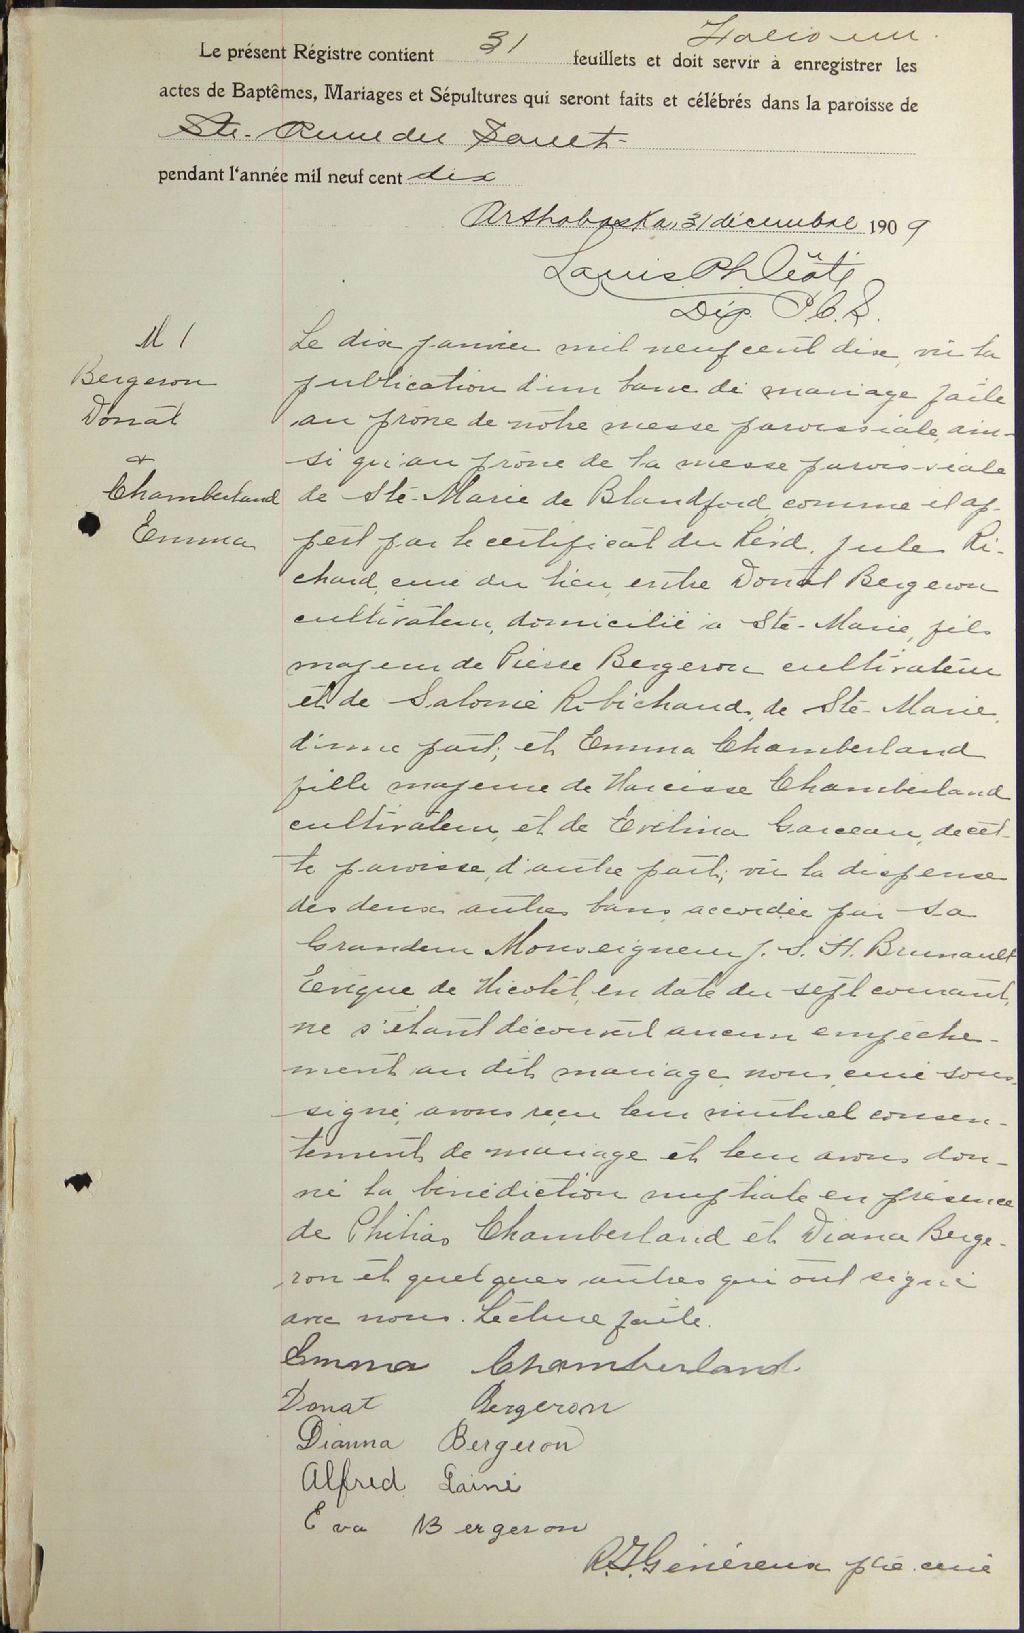 Le présent Régistre contient 31 feuillets et doit servir à enregistrer les
actes de Baptêmes, Mariages et Sépultures qui seront faits et célébrés dans la paroisse de
Ste-Anne du Sault
pendant l'année mil neuf cent dix
Arthabaska, 31 décembre 1909
Louis Ph.
Dép. P.C.S.
M 1
Bergeron
Donat
&
Chamberland
Emma
Le dix janvier mil neuf cent dix, vu la
publication d'un banc de mariage faite
au prône de nôtre messe paroissiale, ain-
si qu'au prône de la messe paroissiale
de Ste-Marie de Blandford comme il ap-
pert par le certificat du Révd. Jules Ri-
chard, curé du lieu, entre Donat Bergeron
cultivateur, domicilié à Ste-Marie, fils
majeur de Pierre Bergeron cultivateur
et de Salomé Robichaud, de Ste-Marie,
d'une part; et Emma Chamberland
fille majeure de Narcisse Chamberland
cultivateur, et de Evélina Garceau, de cet-
te paroisse, d'autre part; vu la dispense
des deux autres bans accordée par Sa
Grandeur Monseigneur J. S. H. Brunault
Evêque de Nicolet, en date du sept courant,
ne s'étant découvert aucun empêche-
ment au dit mariage, nous, curé sous-
signé, avons reçu leur mutuel consen-
tement de mariage et leur avons don-
né la bénédiction nuptiale en présence
de Philias Chamberland et Diana Berge-
ron et quelques autres qui ont signé
avec nous. Lecture faite.
Emma Chamberland
Donat Bergeron
Dianna Bergeron
Alfred Lainé
Eva Bergeron
R. J. Généreux ptre. curé